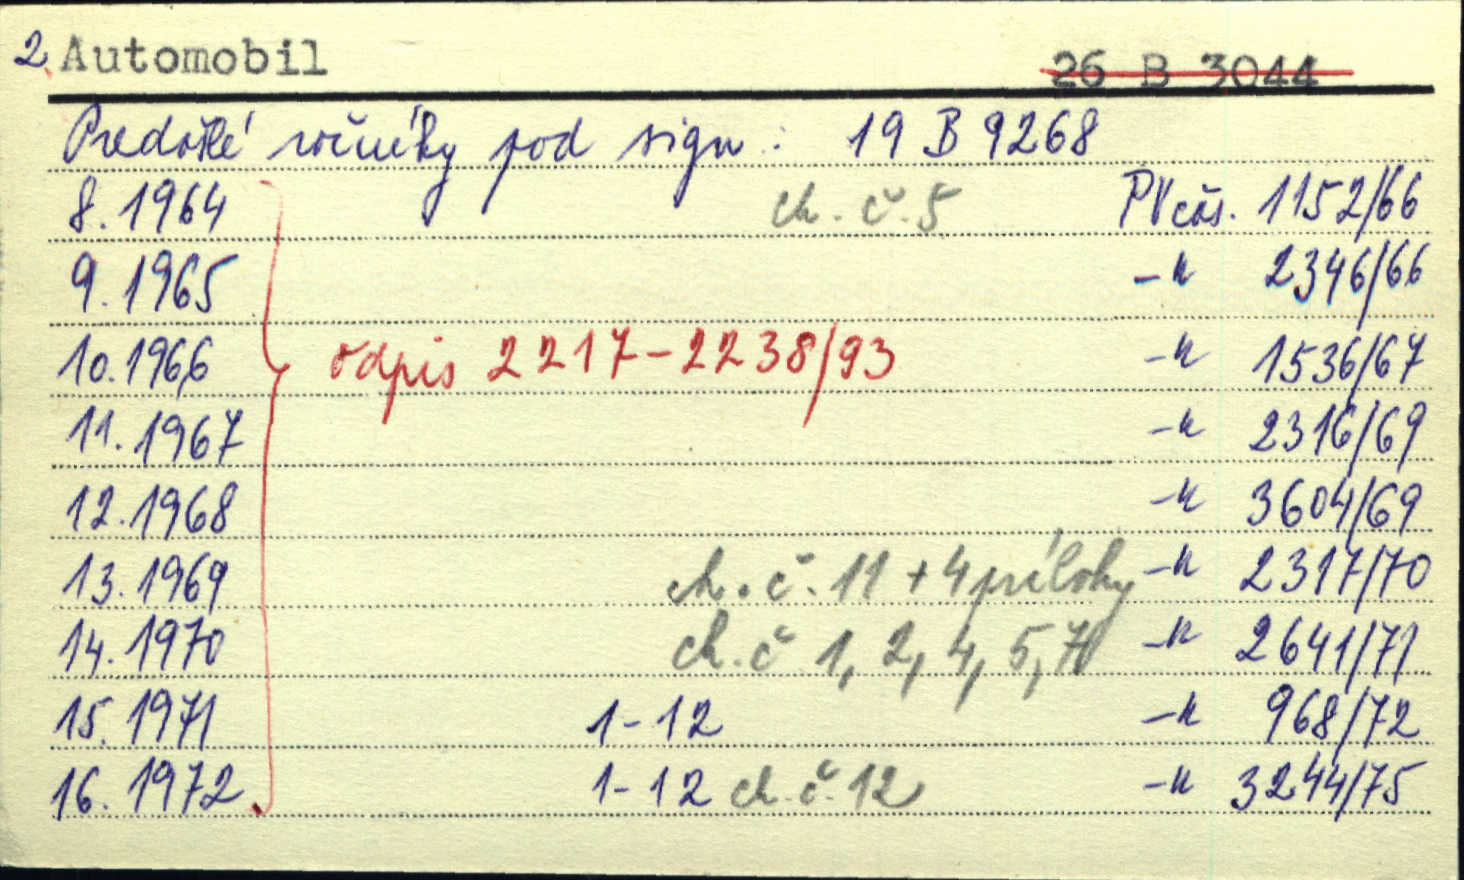 2 Automobil 26 B 3044
Predošlé ročníky pod sign: 19 B 9268
8. 1964 ch. č. 5 PV čas. 1152/66
9. 1965 -"- 2346/66
10. 1966 odpis 2217-2238/93 -"- 1536/67
11. 1967 -"- 2316/69
12. 1968 -"- 3604/69
13. 1969 ch. č. 11 + 4 prílohy -"- 2317/70
14. 1970 ch. č 1, 2, 4, 5, 7 -"- 2641/71
15. 1971 1-12 -"- 968/72
16. 1972 1-12 ch. č. 12 -"- 3244/75